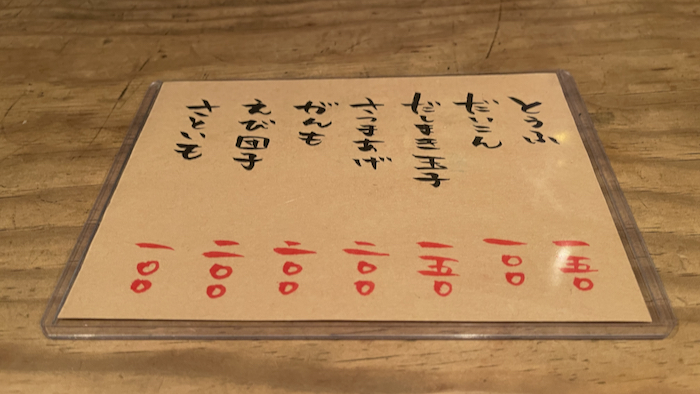 とうふ 一五〇
だいこん 一〇〇
だしまき玉子 一五〇
さつまあげ 二〇〇
がんも 二〇〇
えび団子 二〇〇
さといも 一〇〇